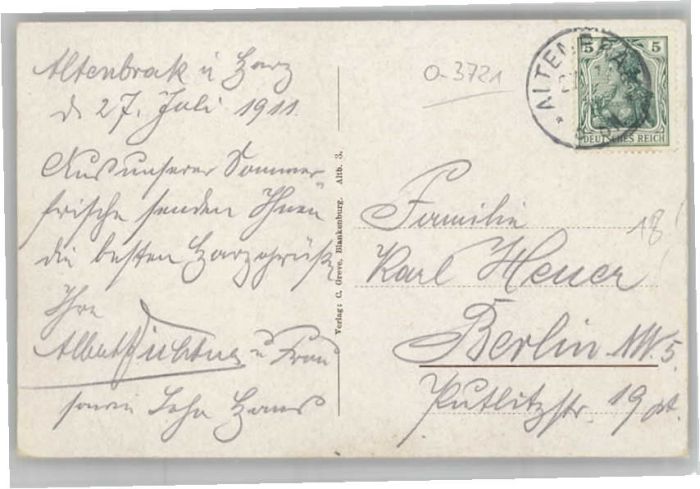 Altenbrak i Harz
d. 27. Juli 1911.
Aus unserer Sommer
frische senden Ihnen
die besten Harzgrüße
Ihre
Albert u Frau
sowie Sohn Hans
Verlag: C. Greve, Blankenburg. Altb. 3.
O-3721
ALTENBRAK
5 5
DEUTSCHES REICH
Familie
18!
Karl Heuer
Berlin NW. 5.
Putlitzstr. 19 pt.